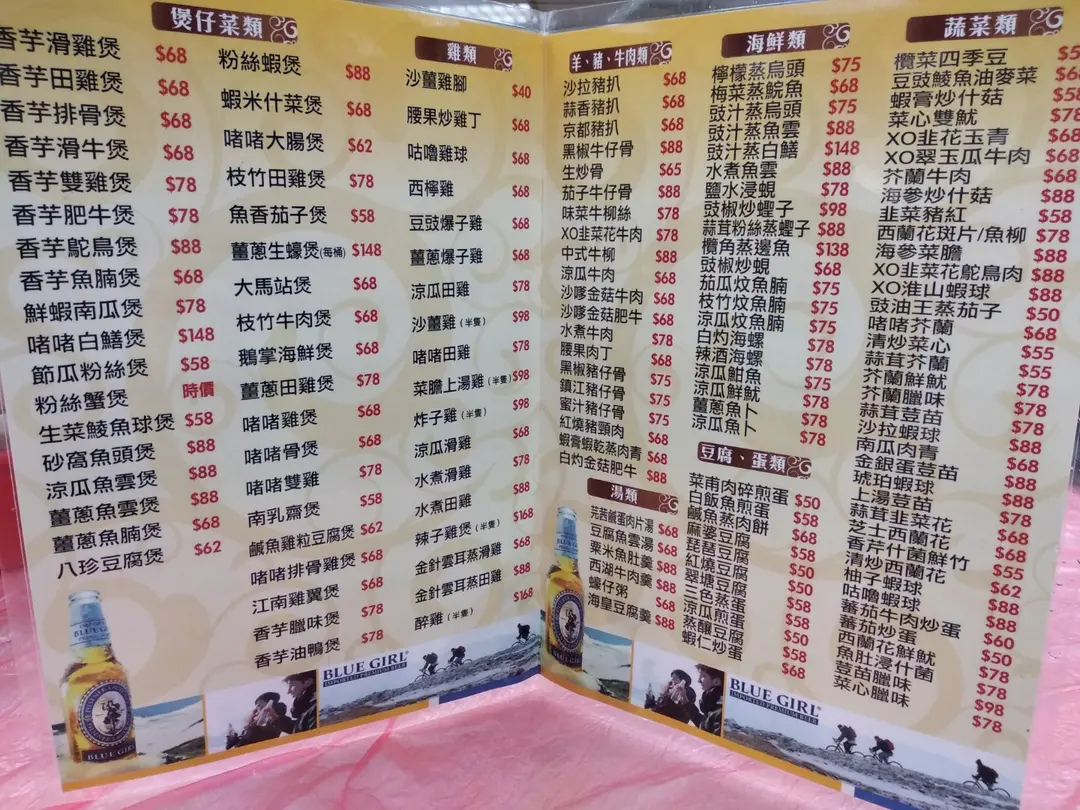 煲仔菜類
香芋滑雞煲 $68
香芋田雞煲 $68
香芋排骨煲 $68
香芋滑牛煲 $68
香芋雙雞煲 $78
香芋肥牛煲 $78
香芋鴕鳥煲 $88
香芋魚腩煲 $68
鮮蝦南瓜煲 $78
啫啫白鱔煲 $148
節瓜粉絲煲 $58
粉絲蟹煲 時價
生菜鯪魚球煲 $58
砂窩魚頭煲 $88
涼瓜魚雲煲 $88
薑蔥魚雲煲 $88
薑蔥魚腩煲 $68
八珍豆腐煲 $62
粉絲蝦煲 $88
蝦米什菜煲 $68
啫啫大腸煲 $62
枝竹田雞煲 $78
魚香茄子煲 $58
薑蔥生蠔煲(每桶) $148
大馬站煲 $68
枝竹牛肉煲 $68
鵝掌海鮮煲 $68
薑蔥田雞煲 $78
啫啫雞煲 $68
啫啫骨煲 $68
啫啫雙雞 $78
南乳齋煲 $58
鹹魚雞粒豆腐煲 $62
啫啫排骨雞煲 $68
江南雞翼煲 $68
香芋臘味煲 $78
香芋油鴨煲 $78
雞類
沙薑雞腳 $40
腰果炒雞丁 $68
咕嚕雞球 $68
西檸雞 $68
豆豉爆子雞 $68
薑蔥爆子雞 $68
涼瓜田雞 $78
沙薑雞(半隻) $98
啫啫田雞 $78
菜膽上湯雞(半隻) $98
炸子雞(半隻) $98
涼瓜滑雞 $68
水煮滑雞 $78
水煮田雞 $88
辣子雞煲(半隻) $168
金針雲耳蒸滑雞 $68
金針雲耳蒸田雞 $88
醉雞(半隻) $168
BLUE GIRL
BLUE GIRL
IMPORTED PREMIUM BEER
羊、豬、牛肉類
沙拉豬扒 $68
蒜香豬扒 $68
京都豬扒 $68
黑椒牛仔骨 $88
生炒骨 $65
茄子牛仔骨 $88
味菜牛柳絲 $78
XO韭菜花牛肉 $78
中式牛柳 $88
涼瓜牛肉 $68
沙嗲金菇牛肉 $68
沙嗲金菇肥牛 $68
水煮牛肉 $78
腰果肉丁 $68
黑椒豬仔骨 $75
鎮江豬仔骨 $75
蜜汁豬仔骨 $75
紅燒豬頸肉 $68
蝦膏蝦乾蒸肉青 $68
白灼金菇肥牛 $88
湯類
芫茜鹹蛋肉片湯 $68
豆腐魚雲湯 $68
粟米魚肚羹 $88
西湖牛肉羹 $68
蠔仔粥 $68
海皇豆腐羹 $88
海鮮類
檸檬蒸烏頭 $75
梅菜蒸鯇魚 $68
豉汁蒸烏頭 $75
豉汁蒸魚雲 $88
豉汁蒸白鱔 $148
水煮魚雲 $88
鹽水浸蜆 $78
豉椒炒蟶子 $98
蒜茸粉絲蒸蟶子 $88
欖角蒸邊魚 $138
豉椒炒蜆 $68
茄瓜炆魚腩 $75
枝竹炆魚腩 $75
涼瓜炆魚腩 $75
白灼海螺 $78
辣酒海螺 $78
涼瓜魽魚 $75
涼瓜鮮魷 $78
薑蔥魚卜 $78
涼瓜魚卜 $78
豆腐、蛋類
菜甫肉碎煎蛋 $50
白飯魚煎蛋 $58
鹹魚蒸肉餅 $68
麻婆豆腐 $58
琵琶豆腐 $50
紅燒豆腐 $50
翠塘豆腐 $58
三色蒸蛋 $58
涼瓜煎蛋 $50
蒸釀豆腐 $58
蝦仁炒蛋 $68
蔬菜類
欖菜四季豆
豆豉鯪魚油麥菜
蝦膏炒什菇 $58
菜心雙魷 $78
XO韭花玉青 $68
XO翠玉瓜牛肉 $68
芥蘭牛肉 $68
海參炒什菇 $88
韭菜豬紅 $58
西蘭花斑片/魚柳 $78
海參菜膽 $88
XO韭菜花鴕鳥肉 $88
XO淮山蝦球 $88
豉油王蒸茄子 $50
啫啫芥蘭 $68
清炒菜心 $55
蒜茸芥蘭 $55
芥蘭鮮魷 $78
芥蘭臘味 $78
蒜茸莧苗 $78
沙拉蝦球 $78
南瓜肉青 $68
金銀蛋莧苗 $88
琥珀蝦球 $88
上湯莧苗 $88
蒜茸韭菜花 $68
芝士西蘭花 $68
香芹什菌鮮竹 $55
清炒西蘭花 $62
柚子蝦球 $88
咕嚕蝦球 $88
蕃茄牛肉炒蛋 $60
蕃茄炒蛋 $50
西蘭花鮮魷 $78
魚肚浸什菌 $78
莧苗臘味 $98
菜心臘味 $78
BLUE GIRL
BLUE GIRL
IMPORTED PREMIUM BEER